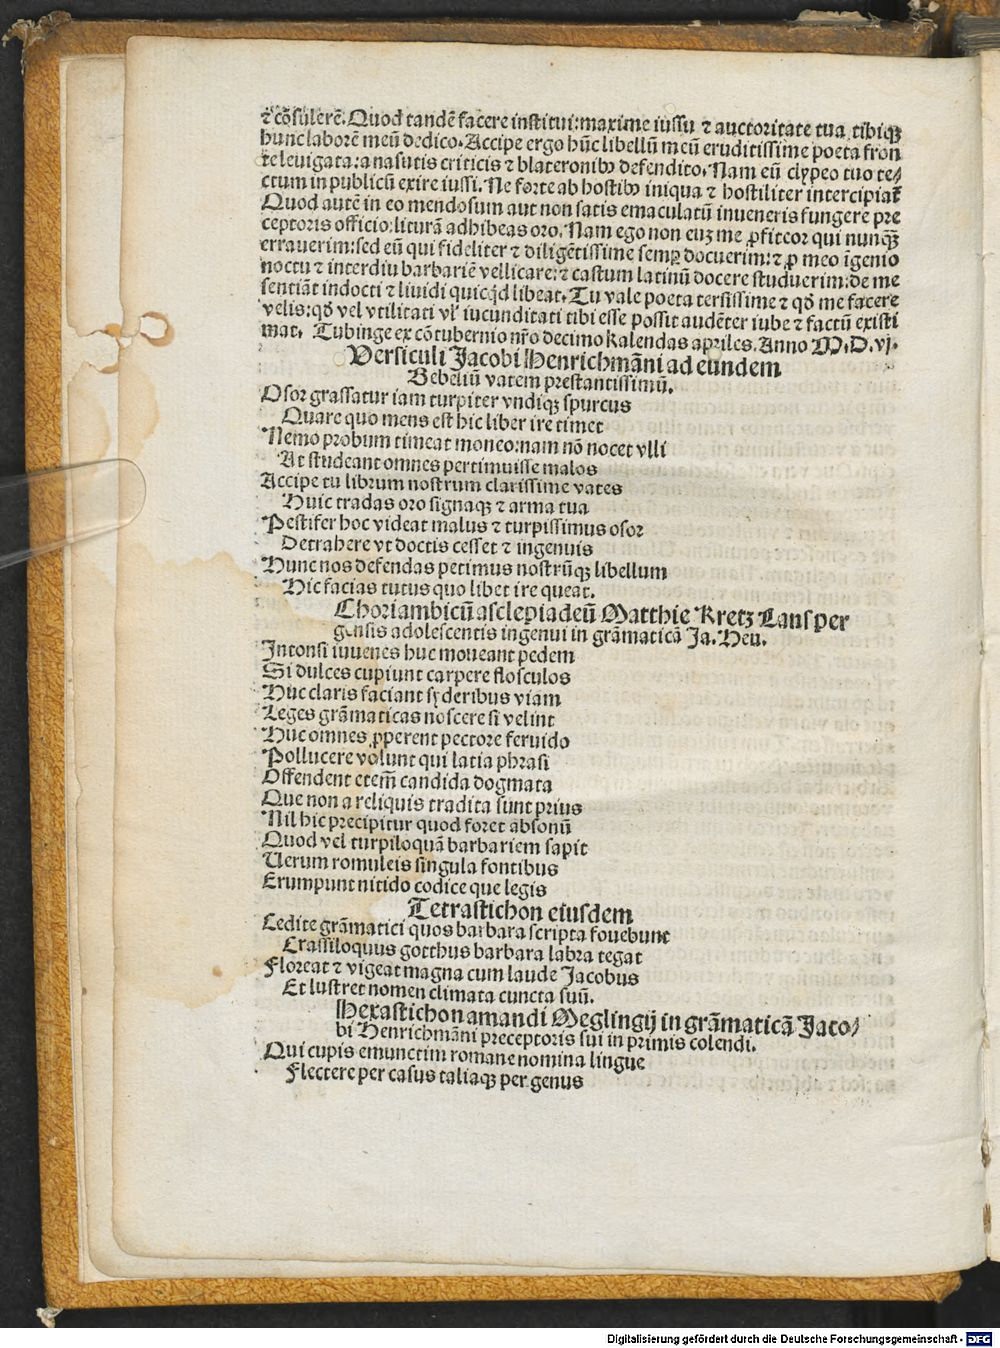 ⁊ cõsulerẽ. Quod tandẽ facere institui: maxime iussu ⁊ auctoritate tua tibiqꝫ
hunc laborẽ meũ dedico. Accipe ergo hũc libellũ meũ eruditissime poeta fron
te leuigata: a nasutis criticis ⁊ blateronibꝰ defendito. Nam eũ clypeo tuo te⸗
ctum in publicũ exire iussi. Ne forte ab hostibꝰ iniqua ⁊ hostiliter intercipiat᷑
Quod autẽ in eo mendosum aut non satis emaculatũ inueneris fungere pre
ceptoris officio: liturã adhibeas oro. Nam ego non euꝫ me ꝓfiteor qui nunqꝫ̃
errauerim: sed eũ qui fideliter ⁊ diligẽtissime semꝑ docuerim: ⁊ ꝓ meo ĩgenio
noctu ⁊ interdiu barbariẽ vellicare: ⁊ castum latinũ docere studuerim: de me
sentiãt indocti ⁊ liuidi quicq̃d libeat. Tu vale poeta tersissime ⁊ qď me facere
velis: qď vel vtilitati vl' iucunditati tibi esse possit audẽter iube ⁊ factũ existi
mat. Tubinge ex cõtubernio nr̃o decimo kalendas apriles. Anno M.D.vj.
Versiculi Jacobi Henrichmãni ad eundem
Bebeliũ vatem prestantissimũ.
Osor grassatur iam turpiter vndiqꝫ spurcus
Quare quo mens est hic liber ire timet
Nemo probum timeat moneo: nam nõ nocet vlli
At studeant omnes pertimuisse malos
Accipe tu librum nostrum clarissime vates
Huic tradas oro signaqꝫ ⁊ arma tua
Pestifer hoc videat malus ⁊ turpissimus osor
Detrahere vt doctis cesset ⁊ ingenuis
Hunc nos defendas petimus nostrũqꝫ libellum
Hic facias tutus quo libet ire queat.
Choriambicũ asclepiadeũ Matthie Kretz Lansper
gensis adolescentis ingenui in grãmaticã Ja. Hen.
Intonsi iuuenes huc moueant pedem
Si dulces cupiunt carpere flosculos
Huc claris faciant syderibus viam
Leges grãmaticas noscere si velint
Huc omnes ꝓperent pectore feruido
Pollucere volunt qui latia phrasi
Offendent etem̃ candida dogmata
Que non a reliquis tradita sunt prius
Nil hic precipitur quod foret absonũ
Quod vel turpiloquã barbariem sapit
Uerum romuleis singula fontibus
Erumpunt nitido codice que legis
Tetrastichon eiusdem
Cedite grãmatici quos barbara scripta fouebunt
Crassiloquus gotthus barbara labra tegat
Floreat ⁊ vigeat magna cum laude Jacobus
Et lustret nomen climata cuncta suũ.
Hexastichon amandi Meglingij in grãmaticã Jaco⸗
bi Henrichmãni preceptoris sui in primis colendi.
Qui cupis emunctim romane nomina lingue
Flectere per casus taliaqꝫ per genus
Digitalisierung gefördert durch die Deutsche Forschungsgemeinschaft - DFG